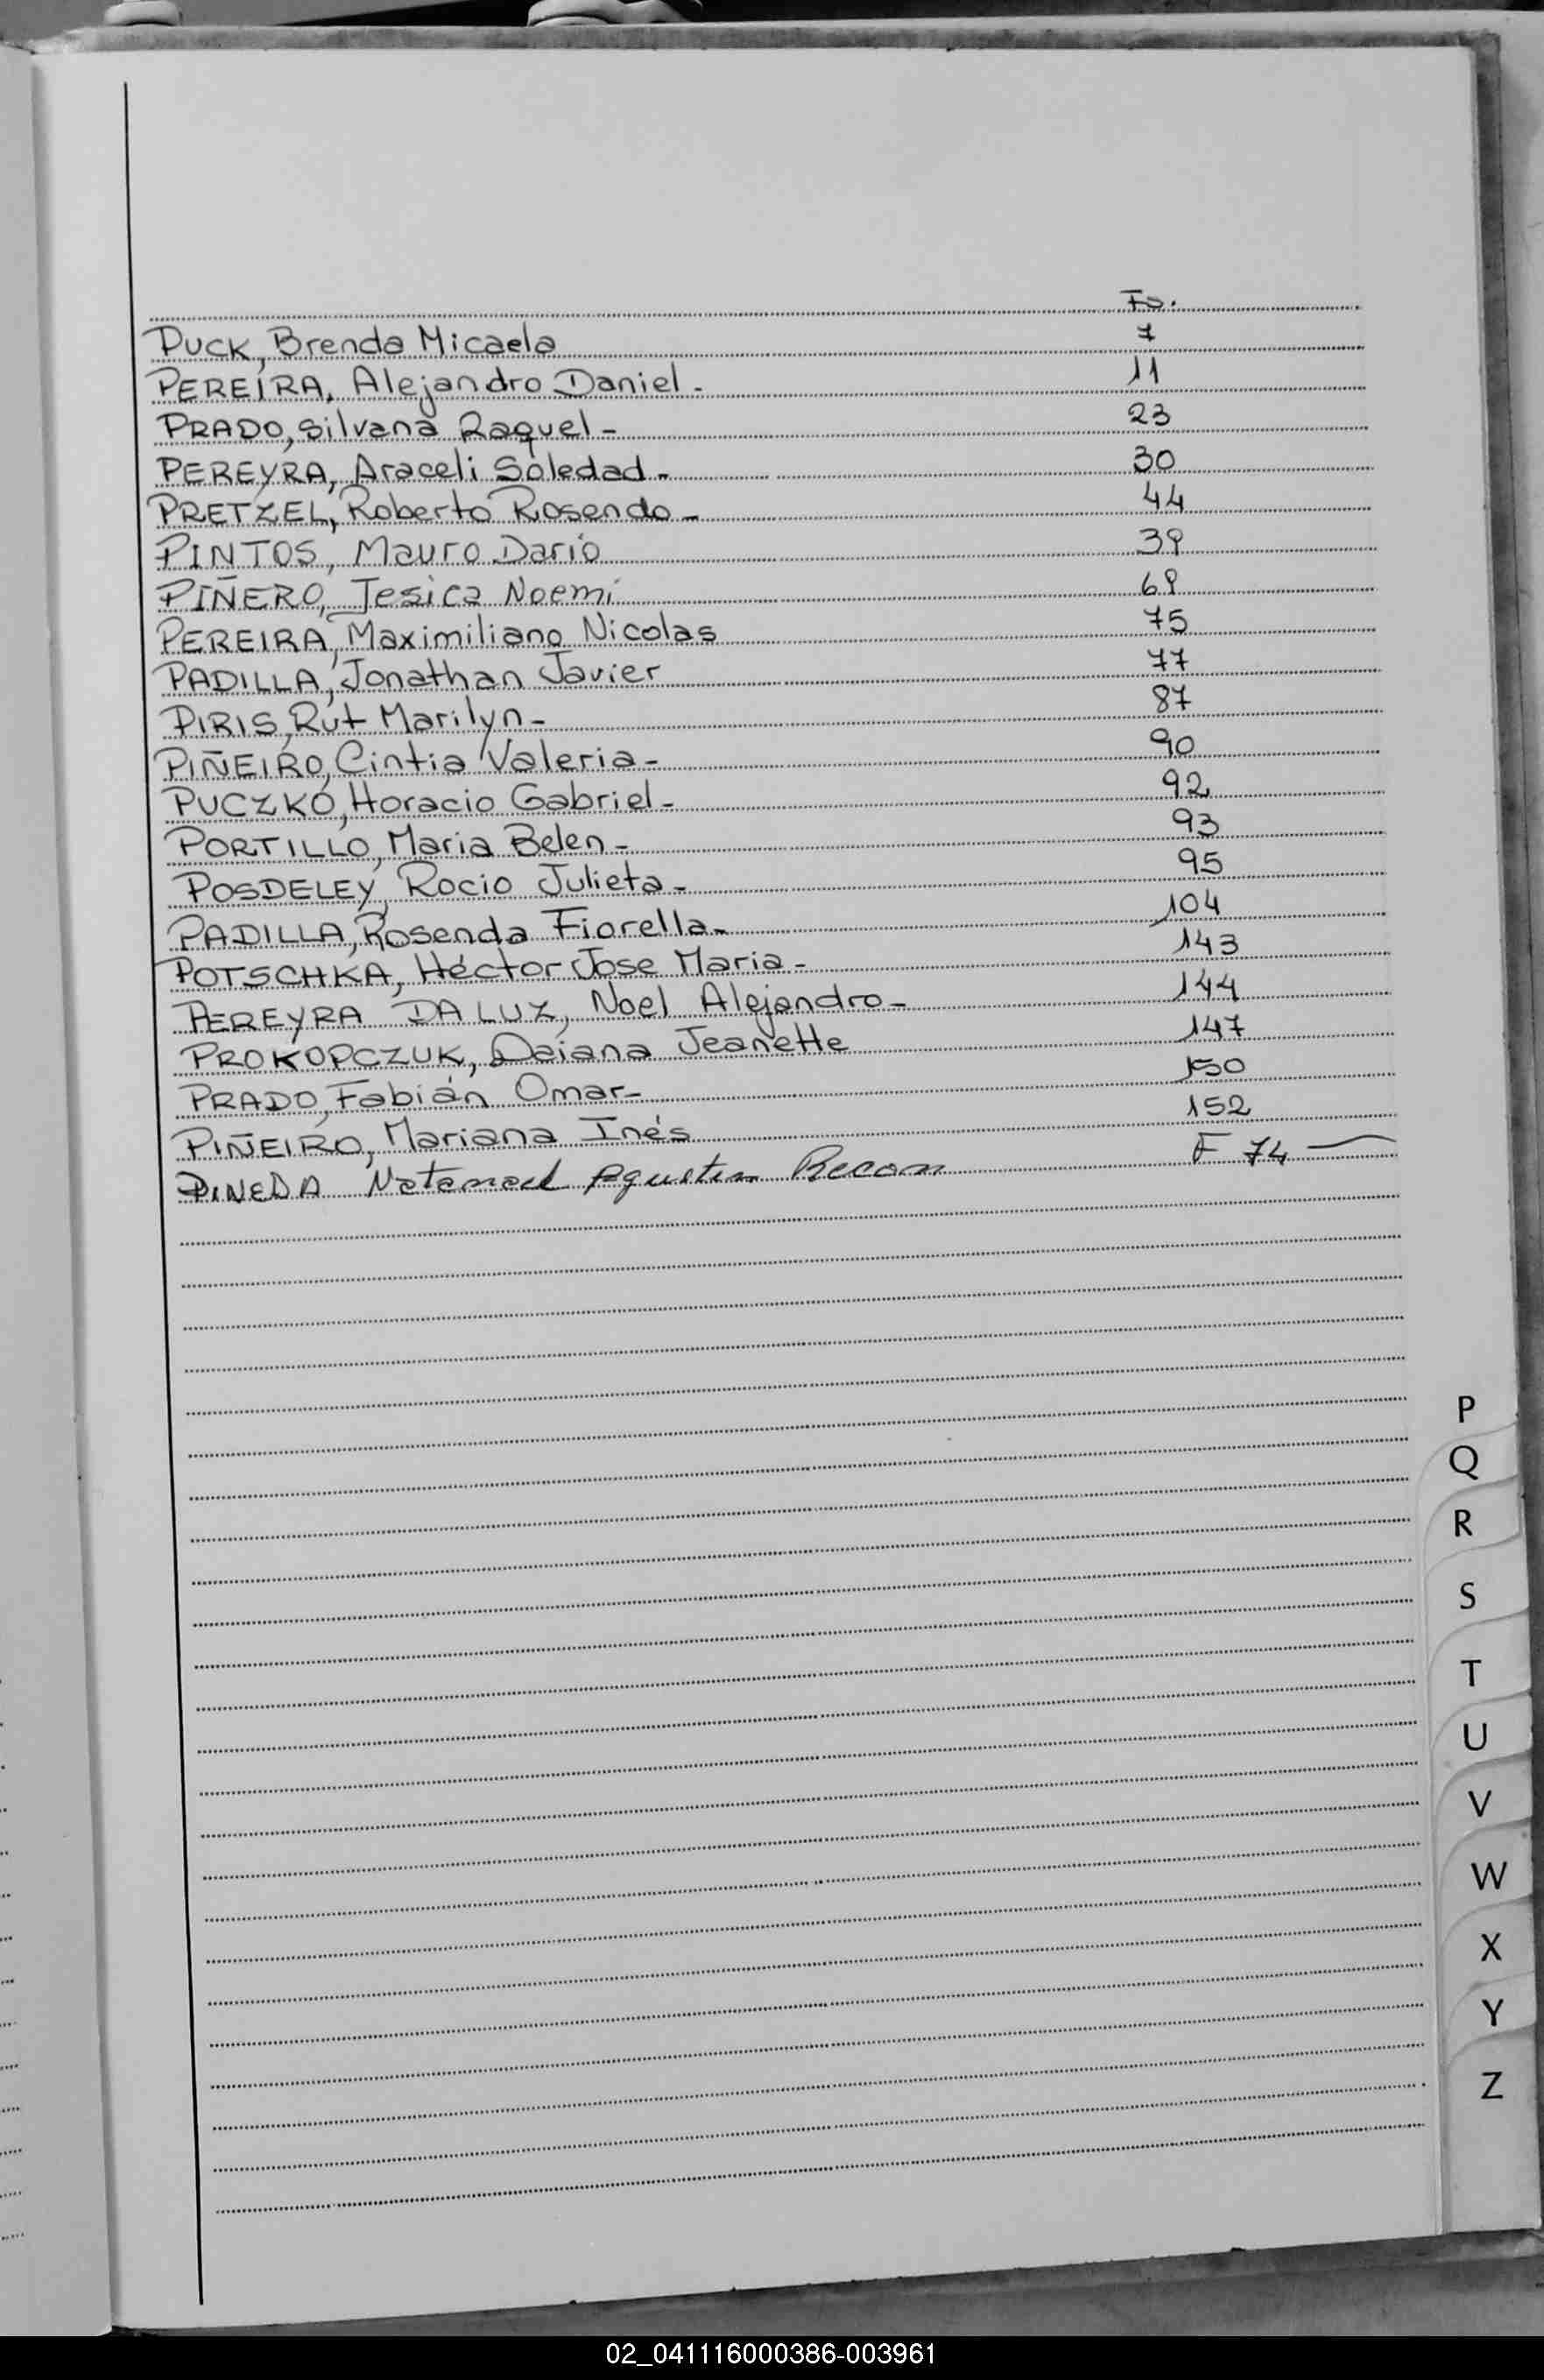 Fo.
PUCK, Brenda Micaela 7
PEREIRA, Alejandro Daniel - 11
PRADO, Silvana Raquel - 23
PEREYRA, Araceli Soledad - 30
PRETZEL, Roberto Rosendo - 44
PINTOS, Mauro Dario 39
PIÑERO, Jesica Noemi 69
PEREIRA, Maximiliano Nicolas 75
PADILLA, Jonathan Javier 77
PIRIS, Rut Marilyn - 87
PIÑEIRO, Cintia Valeria - 90
PUCZKO, Horacio Gabriel - 92
PORTILLO, Maria Belen - 93
POSDELEY, Rocio Julieta - 95
PADILLA, Rosenda Fiorella - 104
POTSCHKA, Héctor Jose Maria - 143
PEREYRA DA LUZ, Noel Alejandro - 144
PROKOPCZUK, Daiana Jeanette 147
PRADO, Fabián Omar - 150
PIÑEIRO, Mariana Inés 152
PINEDA Natanael Agustin F 74
P
Q
R
S
T
U
V
W
X
Y
Z
02_041116000386-003961